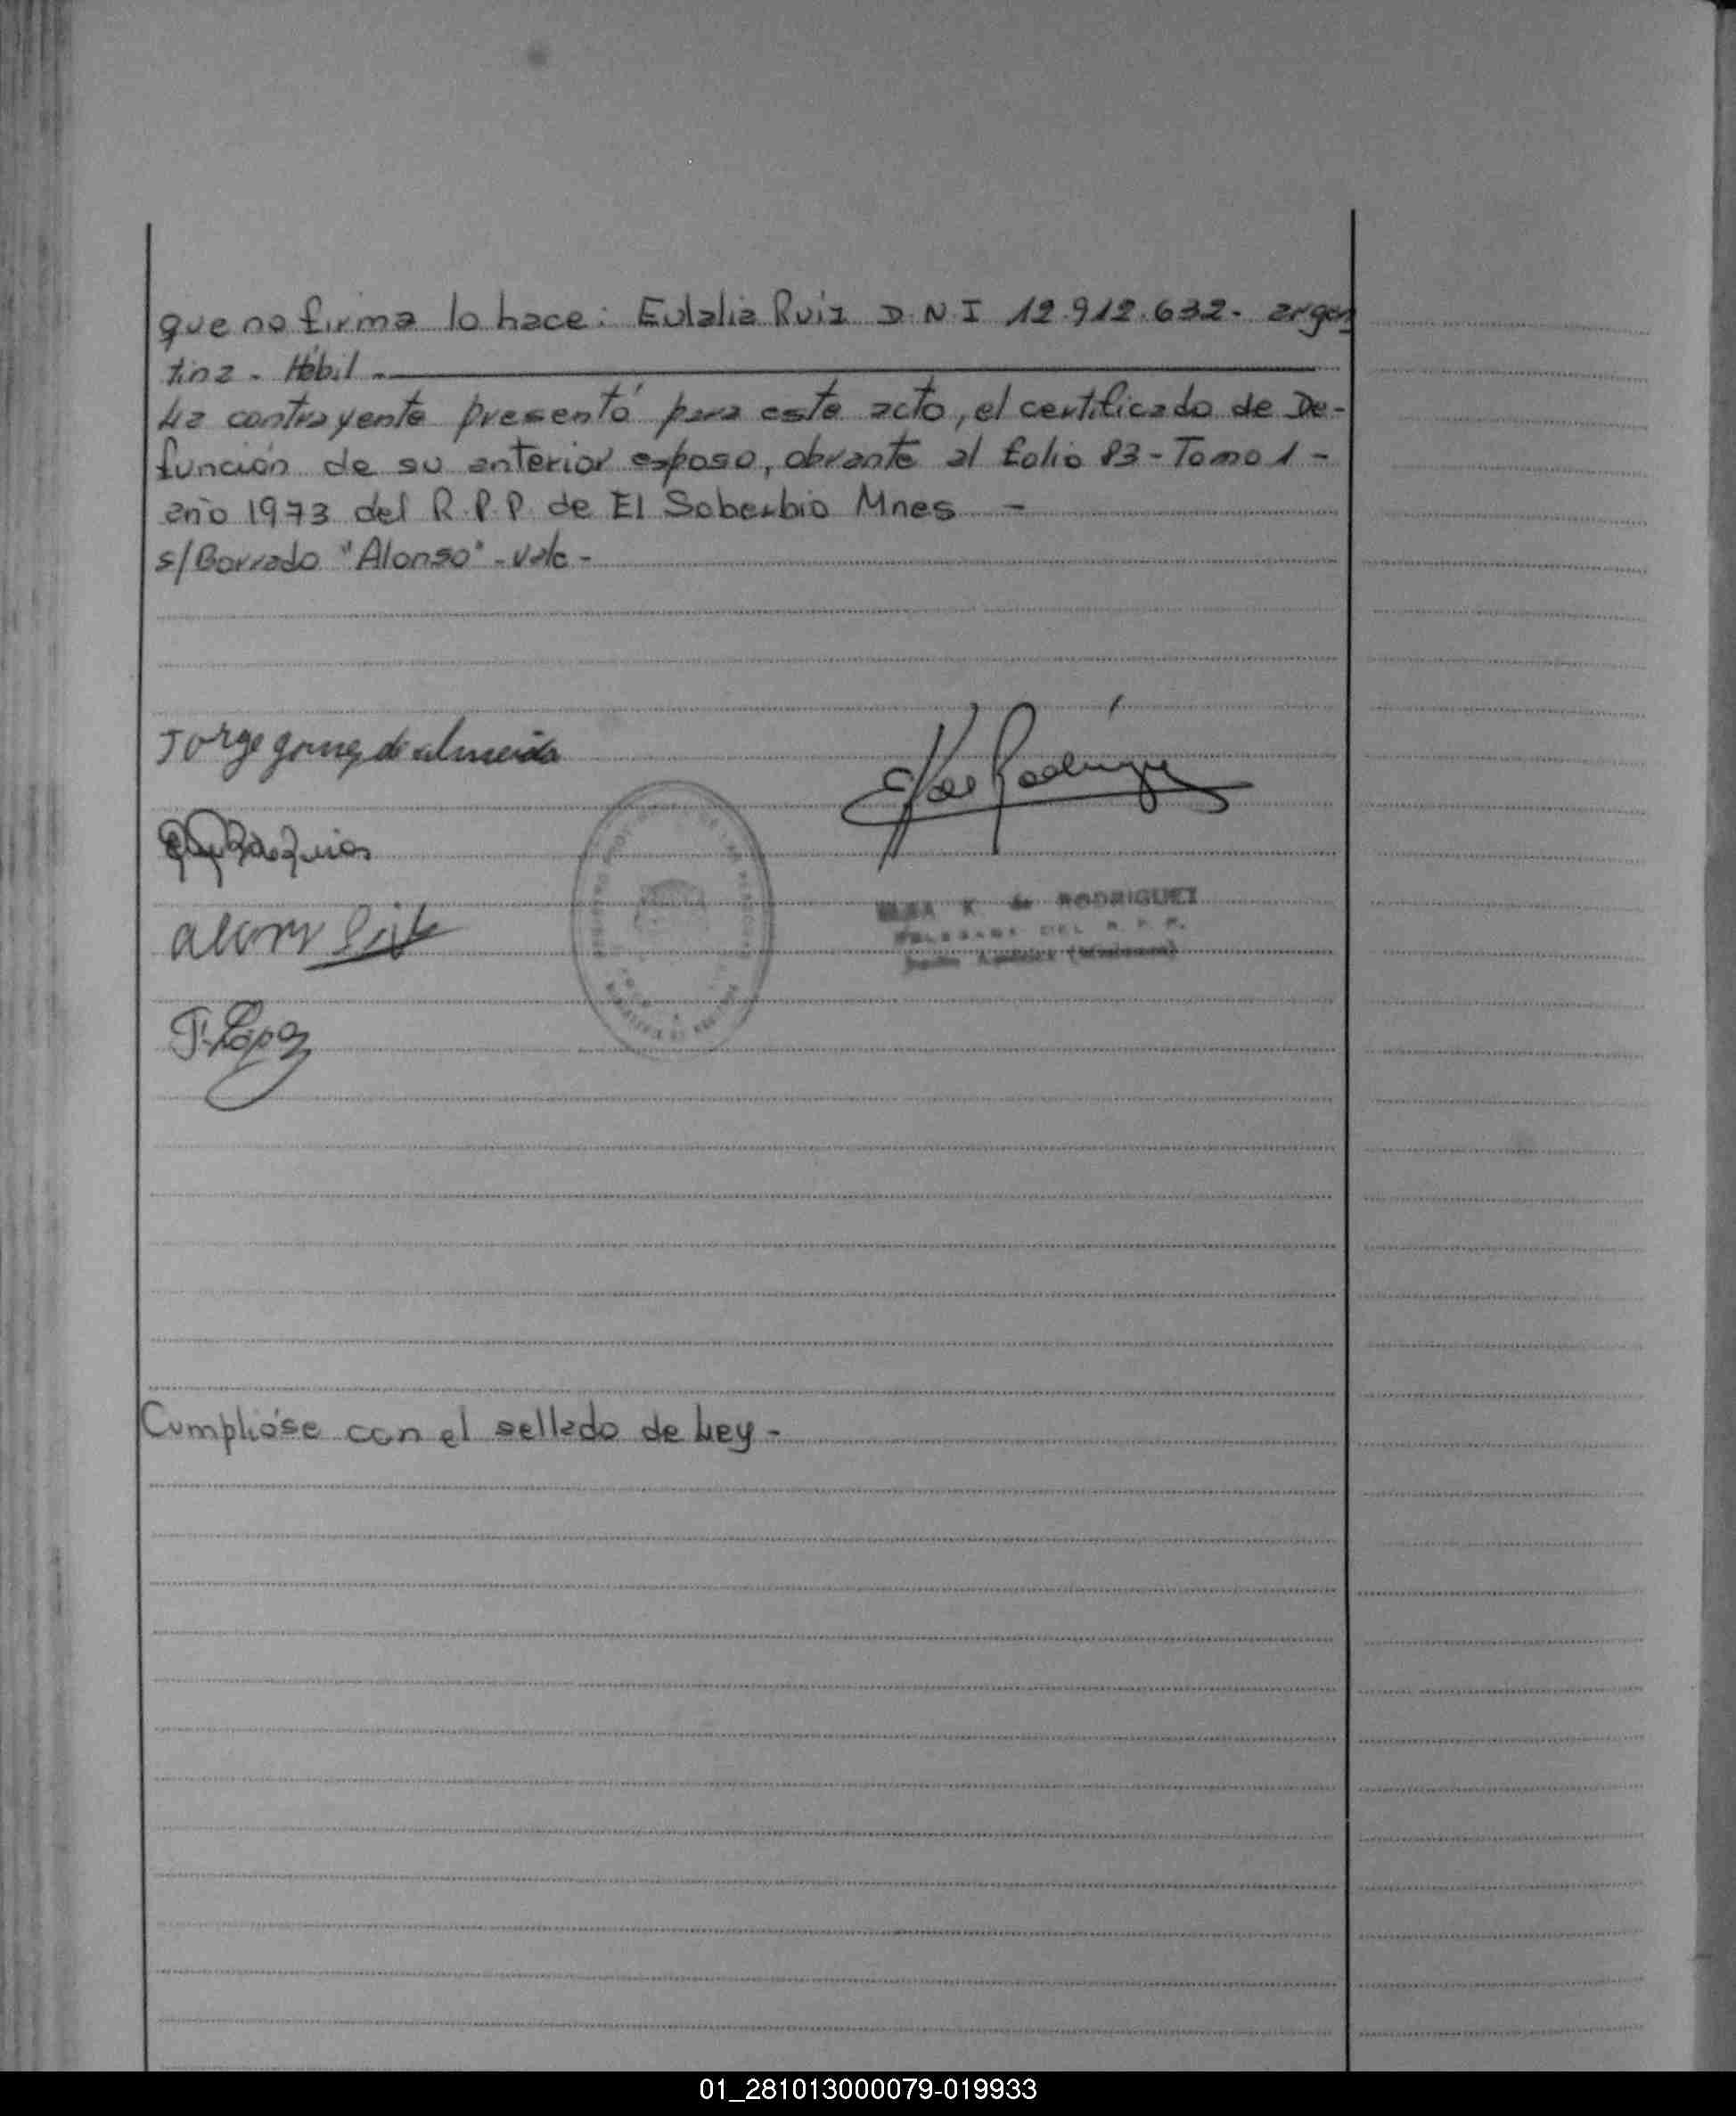 que no firma lo hace: Eulalia Ruiz D.N.I 12.912.632- argen
tina - Hábil -
La contrayente presentó para este acto, el certificado de De-
función de su anterior esposo, obrante al folio 83 - Tomo 1 -
año 1973 del R.P.P. de El Soberbio Mnes -
s/Borrado "Alonso" - vale -
Jorge gomez de almeida
F. López
K. de RODRIGUEZ
DEL R. P. P.
(Misiones)
Cumplióse con el sellado de Ley -
01_281013000079-019933